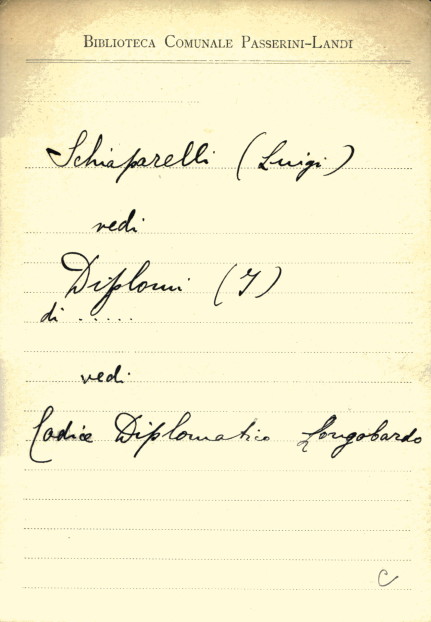 BIBLIOTECA COMUNALE PASSERINI-LANDI
Schiaparelli (Luigi)
vedi
Diplomi (I)
di .....
vedi
Codice Diplomatico Longobardo
C